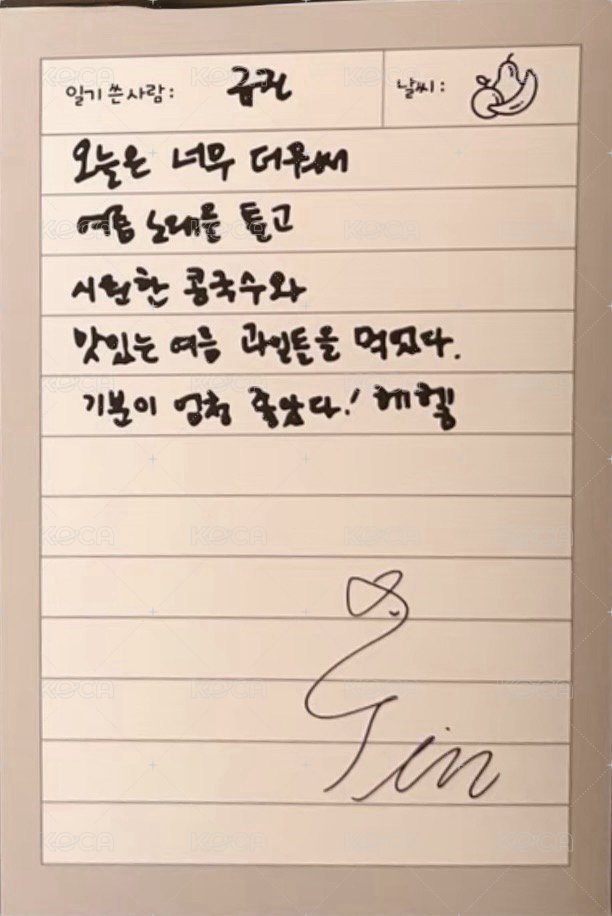 일기 쓴 사람: 규진 날씨:
오늘은 너무 더워서
여름 노래를 틀고
시원한 콩국수와
맛있는 여름 과일들을 먹었다.
기분이 엄청 좋았다! 헤헿
KOCA